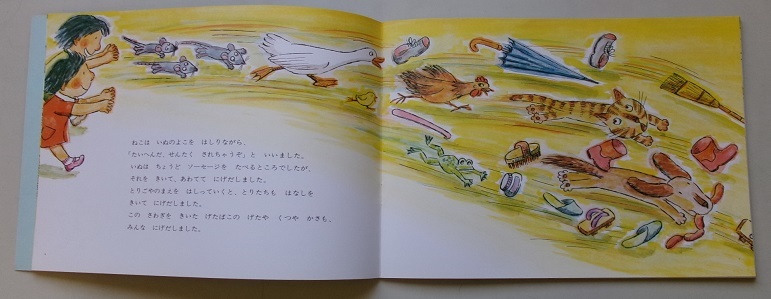 ねこは　いぬのよこを　はしりながら、
「たいへんだ、せんたく　されちゃうぞ」と　いいました。
いぬは　ちょうど　ソーセージを　たべるところでしたが、
それを　きいて、あわてて　にげだしました。
とりごやのまえを　はしっていくと、とりたちも　はなしを
きいて　にげだしました。
この　さわぎを　きいた　げたばこの　げたや　くつや　かさも、
みんな　にげだしました。